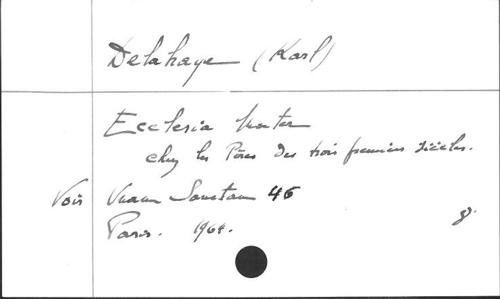 Delahaye (Karl)
Ecclesia Mater
chez les Pères des trois premiers siècles.
Voir Unam Sanctam 46
Paris. 1964.
8°